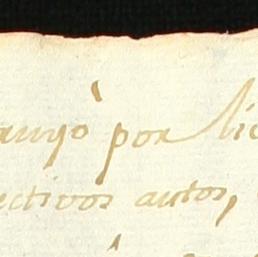 por lic
ectivos autos,